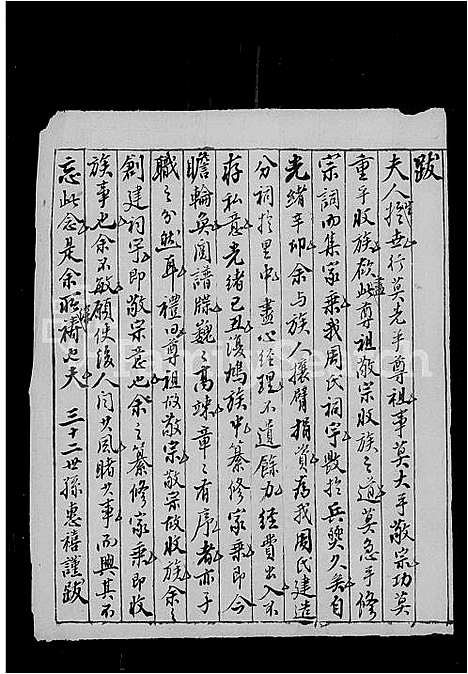 跋
夫人搢世行莫先乎尊祖事莫大乎敬宗功莫
重乎收族欲盡此尊祖敬宗收族之道莫急乎修
宗詞而集家乘我周氏祠宇毀於兵燹久矣自
光緒辛卯余与族人攘臂捐貲為我周氏建造
分祠於里中盡心經理不遺餘力經費出入不
存私意光緒己丑復鳩族中纂修家乘即今
瞻輪奐閱譜牒巍巍高竦章章有序者亦子
職之分然耳禮曰尊祖故敬宗敬宗故收族余之
創建祠宇即敬宗意也余之纂修家乘即收
族事也余不敏願使後人聞其風睹其事而興其不
忘此念是余所禱也夫 三十二世孫惠禧謹跋